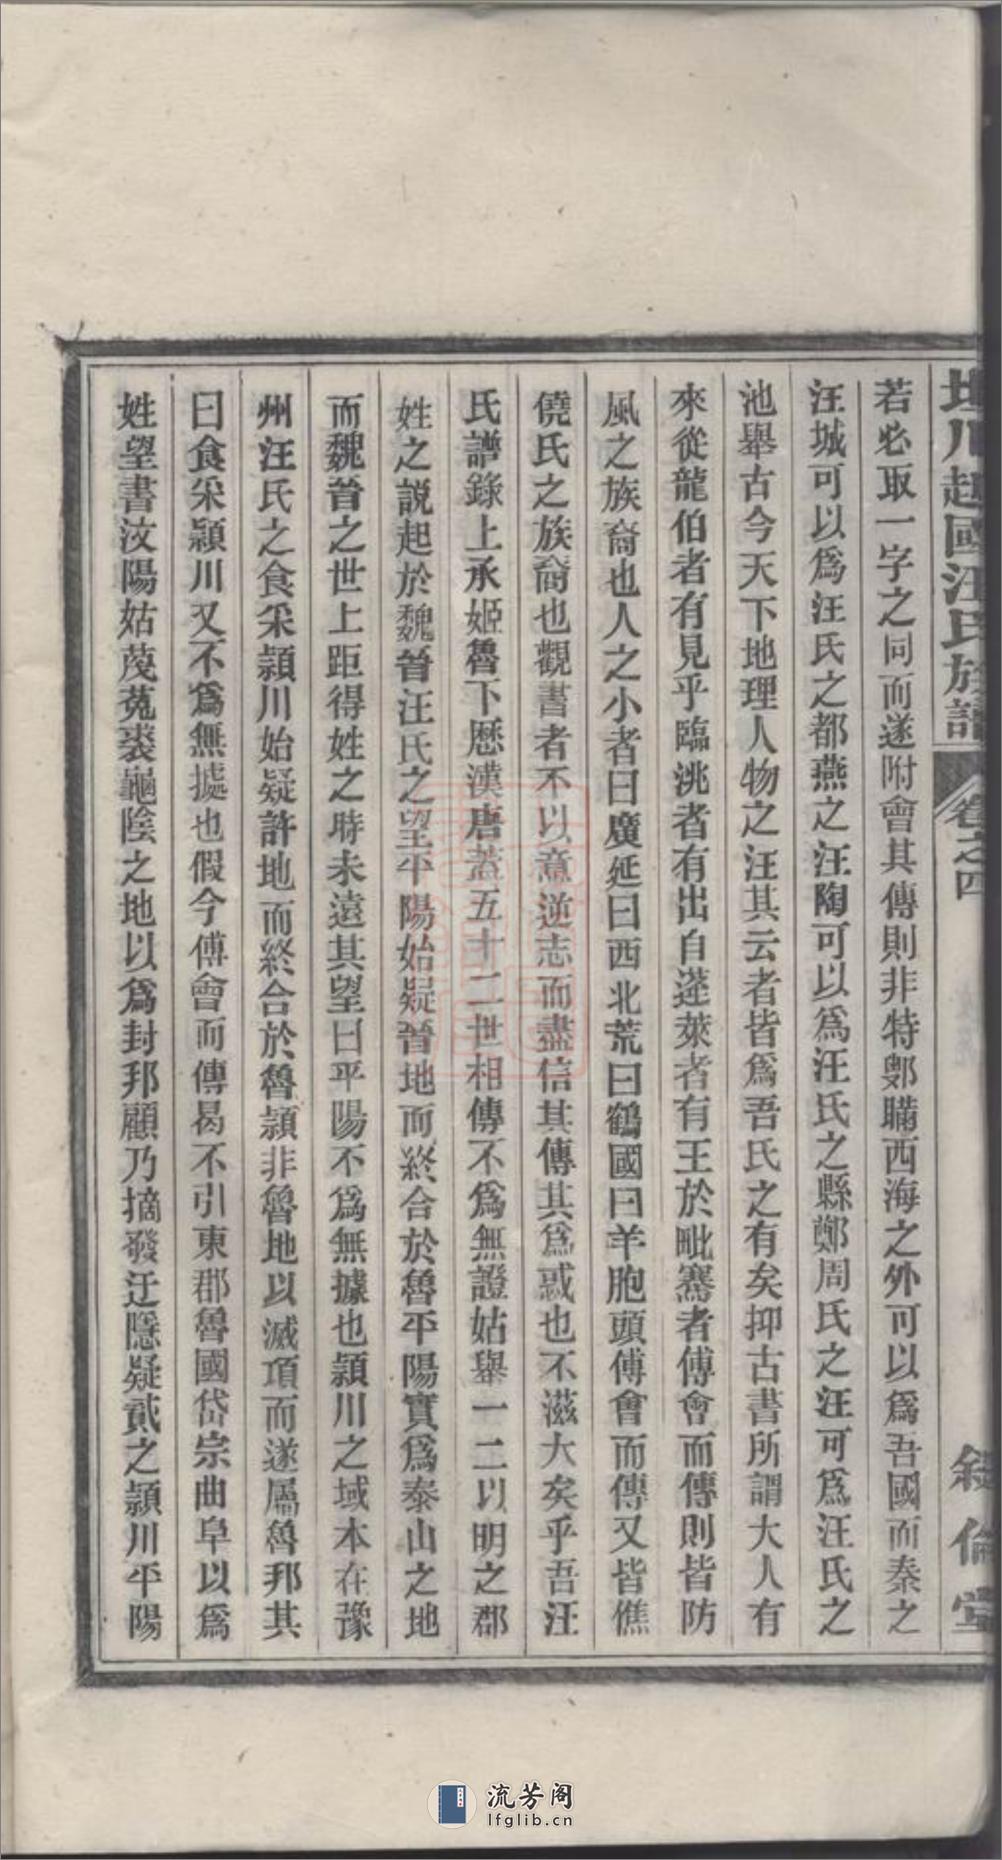 坦川越國汪氏族譜 卷之四 敘倫堂
若必取一字之同而遂附會其傳則非特鄭瞞西海之外可以爲吾國而秦之
汪城可以爲汪氏之都燕之汪陶可以爲汪氏之縣鄭周氏之汪可爲汪氏之
池舉古今天下地理人物之汪其云者皆爲吾氏之有矣抑古書所謂大人有
來從龍伯者有見乎臨洮者有出自蓬萊者有王於毗騫者傅會而傳則皆防
風之族裔也人之小者曰廣延曰西北荒曰鶴國曰羊胞頭傅會而傳又皆僬
僥氏之族裔也觀書者不以意逆志而盡信其傳其爲惑也不滋大矣乎吾汪
氏譜錄上承姬魯下歷漢唐蓋五十二世相傳不爲無證姑舉一二以明之郡
姓之說起於魏晉汪氏之望平陽始疑晉地而終合於魯平陽實爲泰山之地
而魏晉之世上距得姓之時未遠其望曰平陽不爲無據也潁川之域本在豫
州汪氏之食采潁川始疑許地而終合於魯潁非魯地以滅項而遂屬魯邦其
曰食采潁川又不爲無據也假令傅會而傳曷不引東郡魯國岱宗曲阜以爲
姓望書汶陽姑蔑菟裘龜陰之地以爲封邦顧乃摘發迂隱疑貳之潁川平陽
流芳阁
lfglib.cn